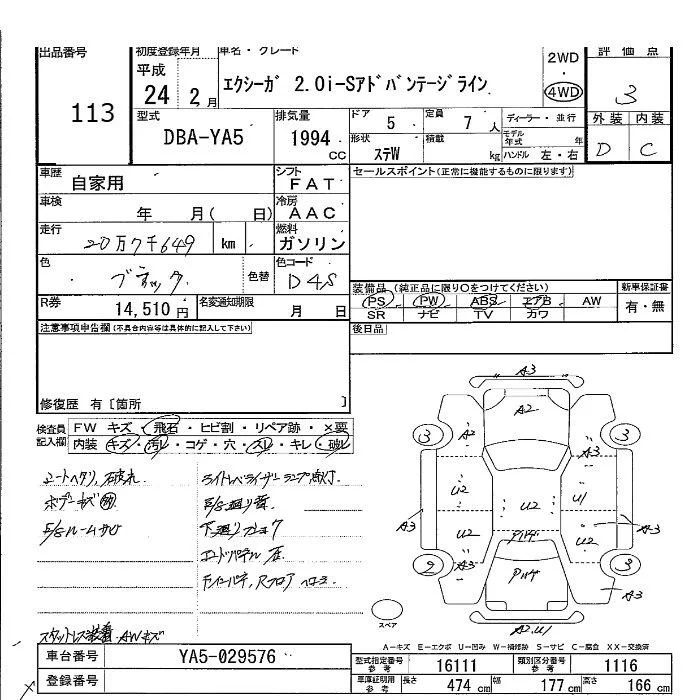 出品番号 初度登録年月 車名・グレード 評価点
113 平成 24 2月 エクシーガ 2.0i-Sアドバンテージライン 2WD ・ 4WD 3
型式 DBA-YA5 排気量 1994 CC ドア 5 定員 7 人 ディーラー・並行 外装 内装
形状 ステW 積載 kg モデル年式 年 ハンドル 左・右 D C
車歴 自家用 シフト FAT セールスポイント(正常に機能するものに限ります)
車検 年 月( 日) 冷房 AAC
走行 20万7千649 km 燃料 ガソリン
色 ブラック 色替 色コード D4S
装備品 (純正品に限り○をつけてください) 新車保証書
R券 14,510円 名変通知期限 月 日 PS PW ABS エアB AW 有・無
SR ナビ TV カワ
注意事項申告欄(不具合内容等は具体的に記入して下さい) 後日品
修復歴 有〔箇所 〕
検査員記入欄 FW キズ・飛石・ヒビ割・リペア跡・×要
内装 キズ・汚レ・コゲ・穴・スレ・キレ・破レ
シートヘタリ、破れ ライトレベライザーランプ点灯
ボデーキズ
下廻り
エンドパネル
スタットレス装着 AWキズ
A3
A2
3 A2 A3 3
U2 U2 U1
A3 U2 U2 A3
2 A3 3
A3
スペア A2.U1
A-キズ E-エクボ U-凹み W-補修跡 S-サビ C-腐食 XX-交換済
車台番号 YA5-029576 型式指定番号 参考 16111 類別区分番号 参考 1116
登録番号 車庫証明用 参考 長さ 474 cm 幅 177 cm 高さ 166 cm